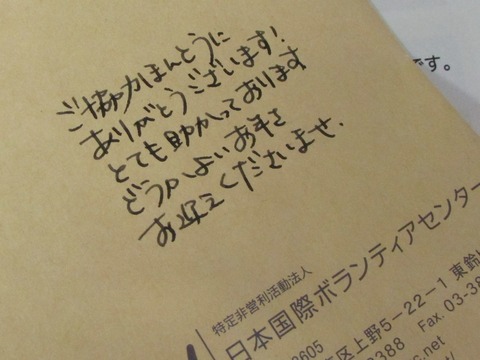 ご協力ほんとうに
ありがとうございます!
とても助かっております
どうかよいお年を
お迎えくださいませ.
です。
特定非営利活動法人
日本国際ボランティアセンター
区上野5-22-1 東鈴
388 Fax. 03-38